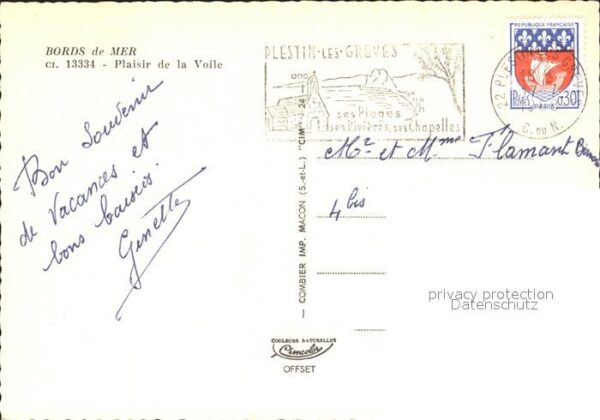 BORDS de MER
CI. 13334 - Plaisir de la Voile
Bon Souvenir
de Vacances et
bons baisers.
Ginette
COMBIER IMP. MACON (S.-et-L.) "CIM"
COULEURS NATURELLES
Cimcolor
OFFSET
PLESTIN-LES-GRÈVES
ses Plages
ses Rivières, ses Chapelles
REPUBLIQUE FRANÇAISE
Postes 0,30
PARIS
22 PLESTIN-LES-GRÈVES
C. DU N.
Mr et Mme Flamant
4 bis
privacy protection
Datenschutz